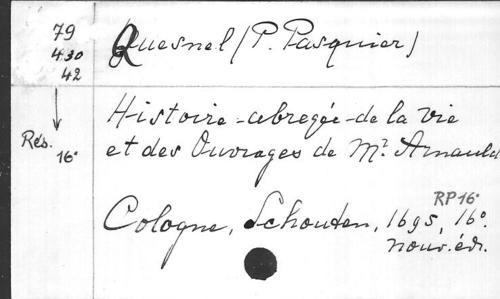 79
430
42
Rés. 16°
Quesnel (P. Pasquier)
Histoire abregée de la vie
et des Ouvrages de Mr. Arnauld
RP 16°
Cologne, Schouten, 1695, 16°.
nouv. éd.